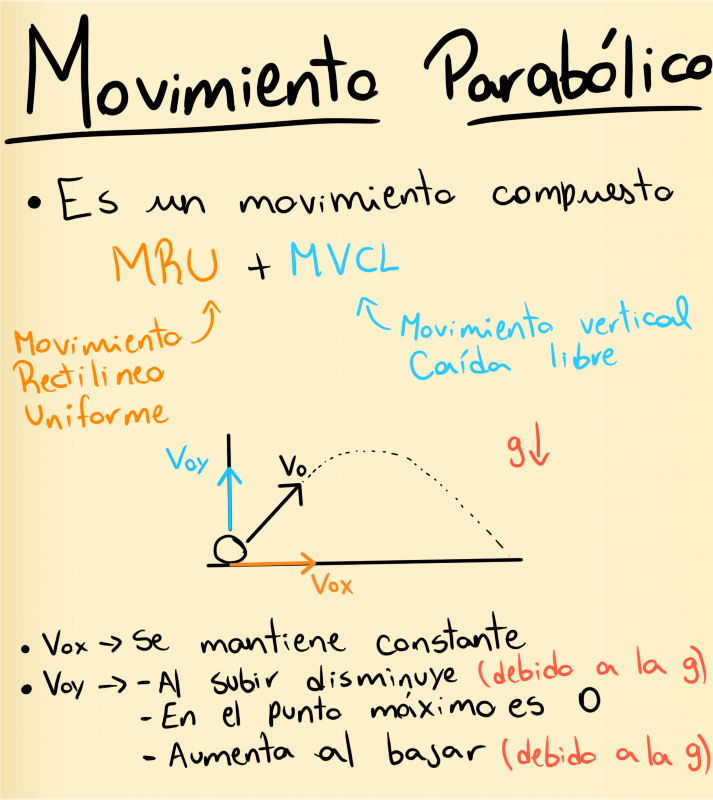 Movimiento Parabólico
• Es un movimiento compuesto
MRU + MVCL
Movimiento
Rectilineo
Uniforme
Movimiento vertical
Caída libre
g↓
Voy
Vo
Vox
• Vox → Se mantiene constante
• Voy → - Al subir disminuye (debido a la g)
- En el punto máximo es 0
- Aumenta al bajar (debido a la g)